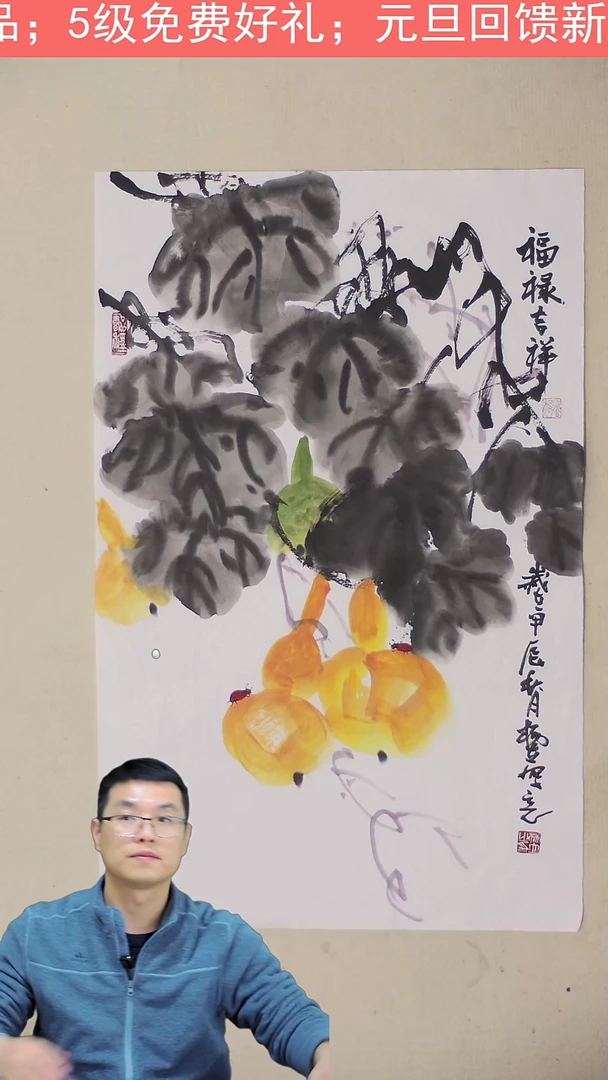 品；5级免费好礼；元旦回馈新
福禄吉祥
岁甲辰秋月
写意